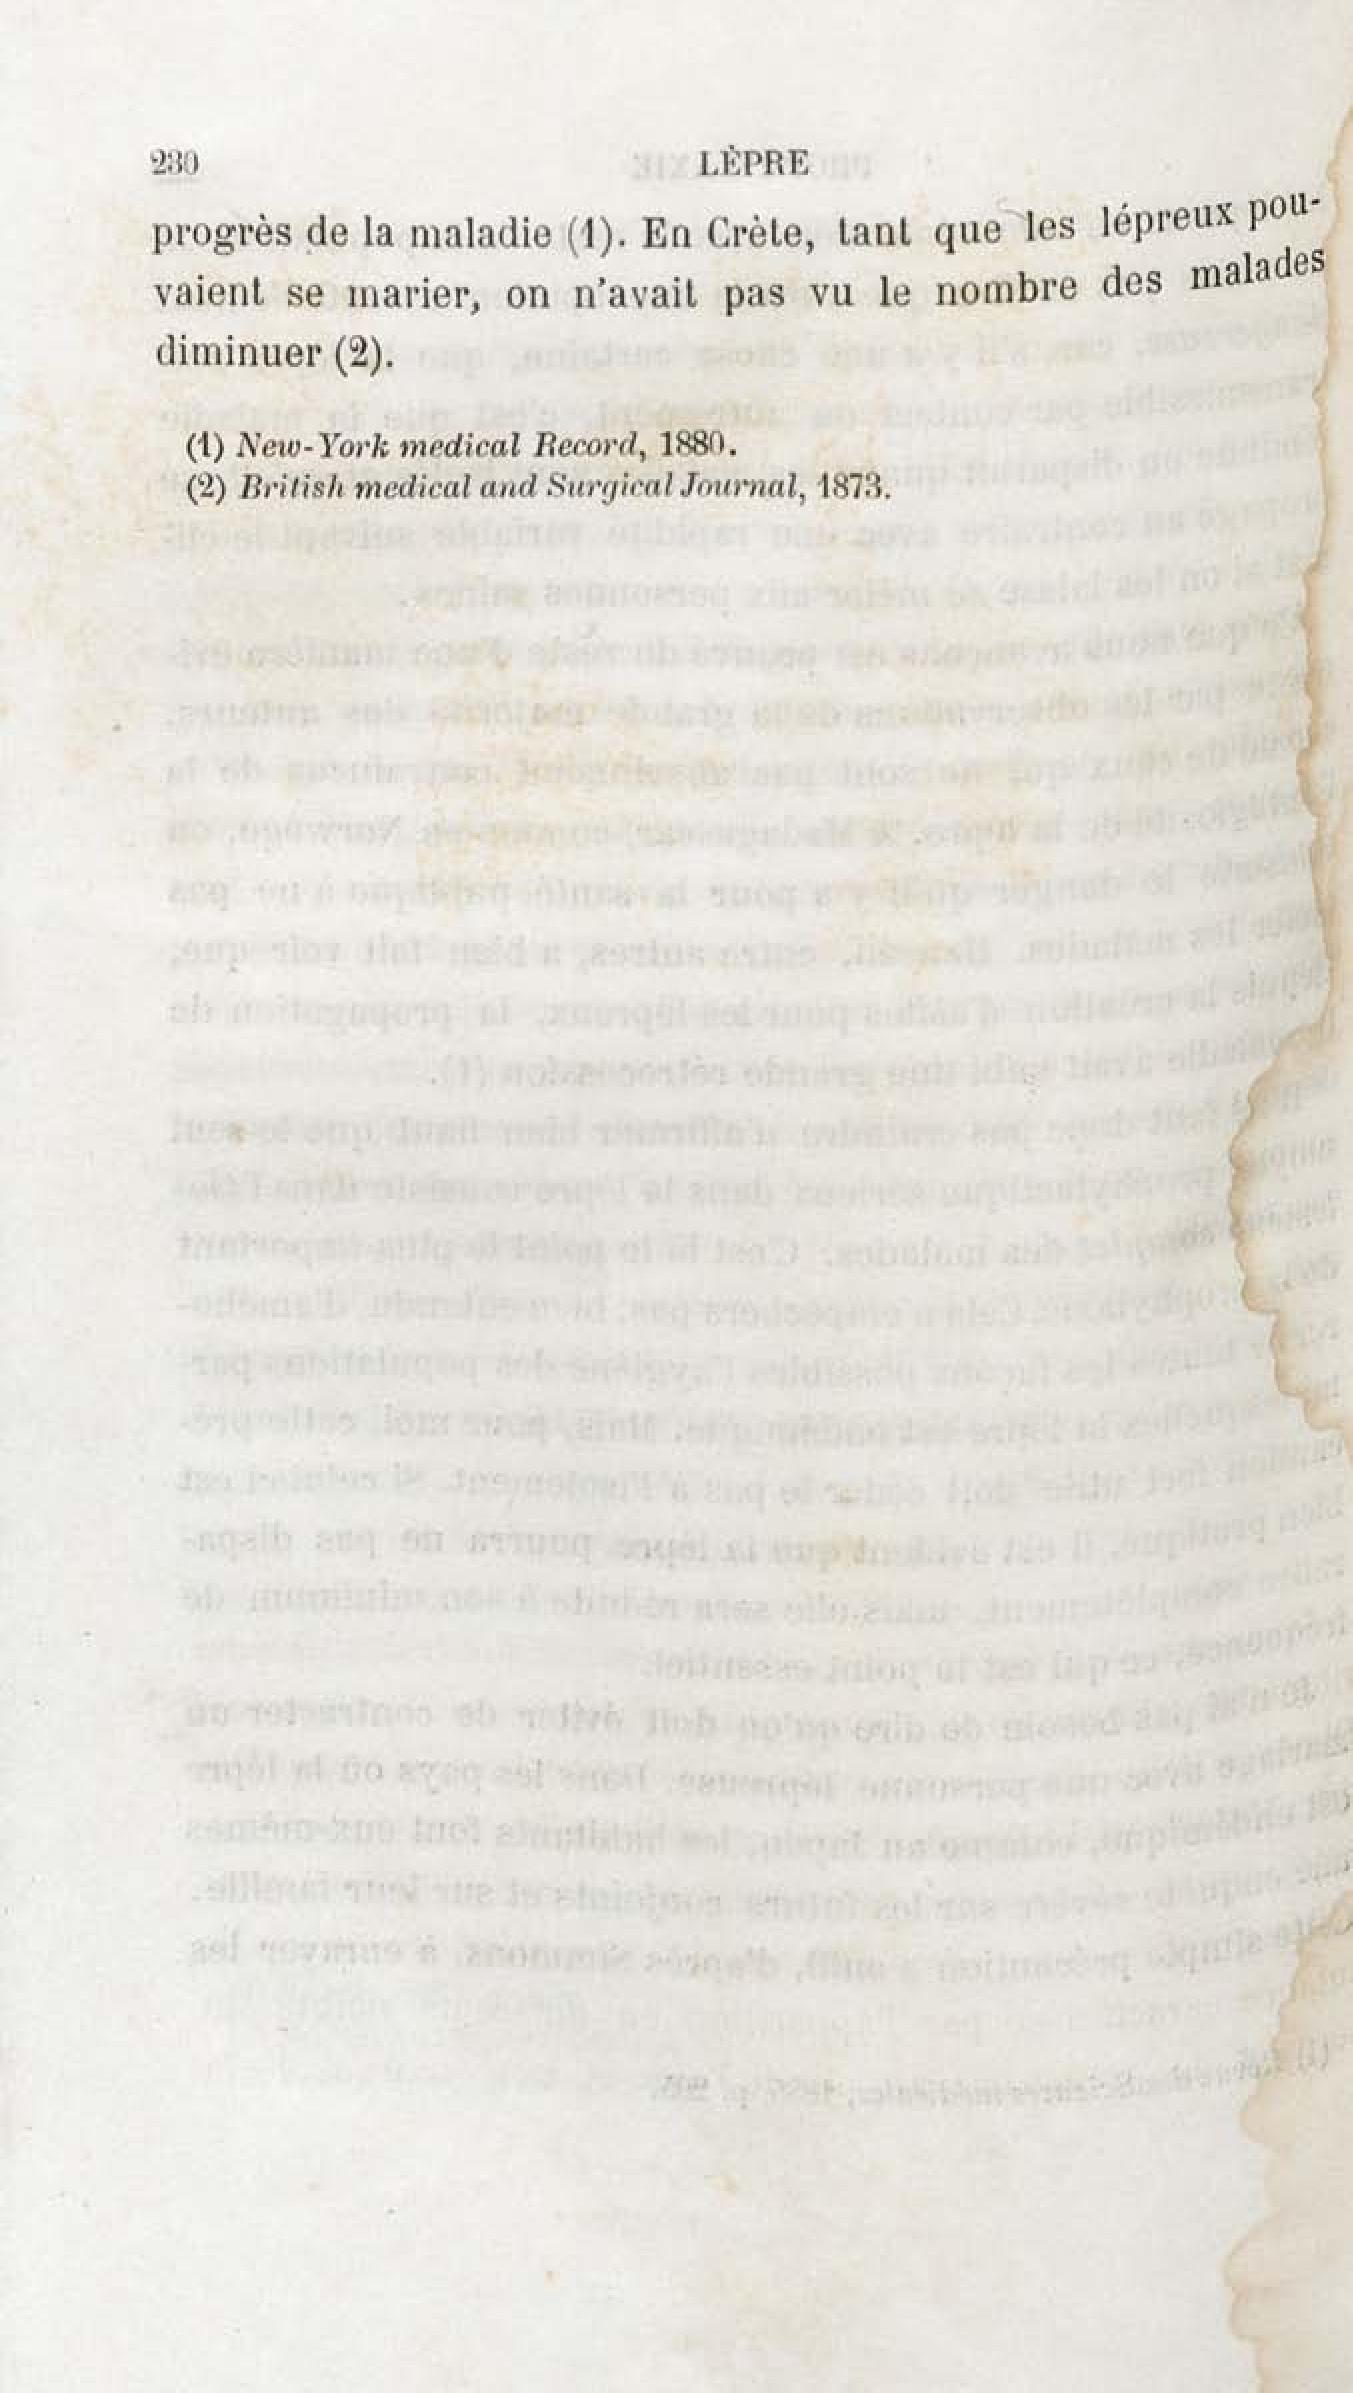 230 LÈPRE
progrès de la maladie (1). En Crète, tant que les lépreux pou-
vaient se marier, on n'avait pas vu le nombre des malades
diminuer (2).
(1) New-York medical Record, 1880.
(2) British medical and Surgical Journal, 1873.